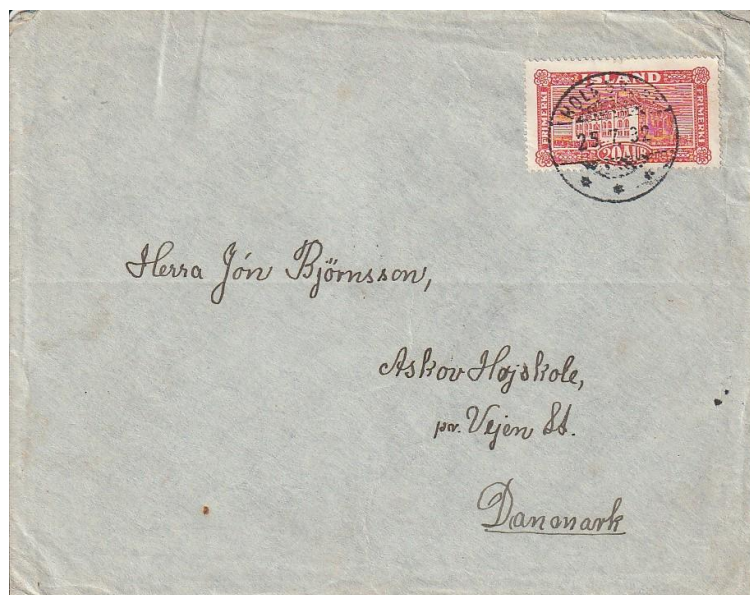 ÍSLAND
FRIMERKI
FRIMERKI
25.7.32
20 AUR
Herra Jón Björnsson,
Askov Højskole,
pr. Vejen St.
Danmark